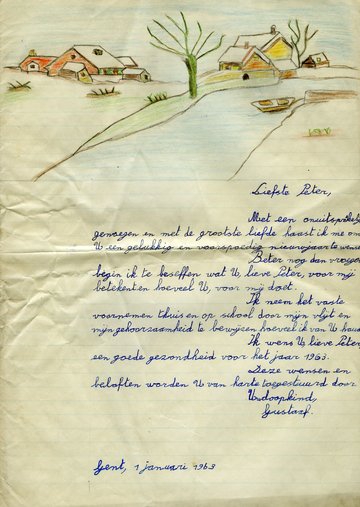 Liefste Peter,
Met een onuitsprekelijk
genoegen en met de grootste liefde haast ik me om
U een gelukkig en voorspoedig nieuwjaar te wensen
Beter nog dan vroeger
begin ik te beseffen wat U, lieve Peter, voor mij
betekent en hoeveel U, voor mij doet.
Ik neem het vaste
voornemen thuis en op school door mijn vlijt en
mijn gehoorzaamheid te bewijzen hoeveel ik van U hou
Ik wens U lieve Peter
een goede gezondheid voor het jaar 1963.
Deze wensen en
beloften worden U van harte toegestuurd door
Uw doopkind,
Gustaaf.
Gent, 1 januari 1963